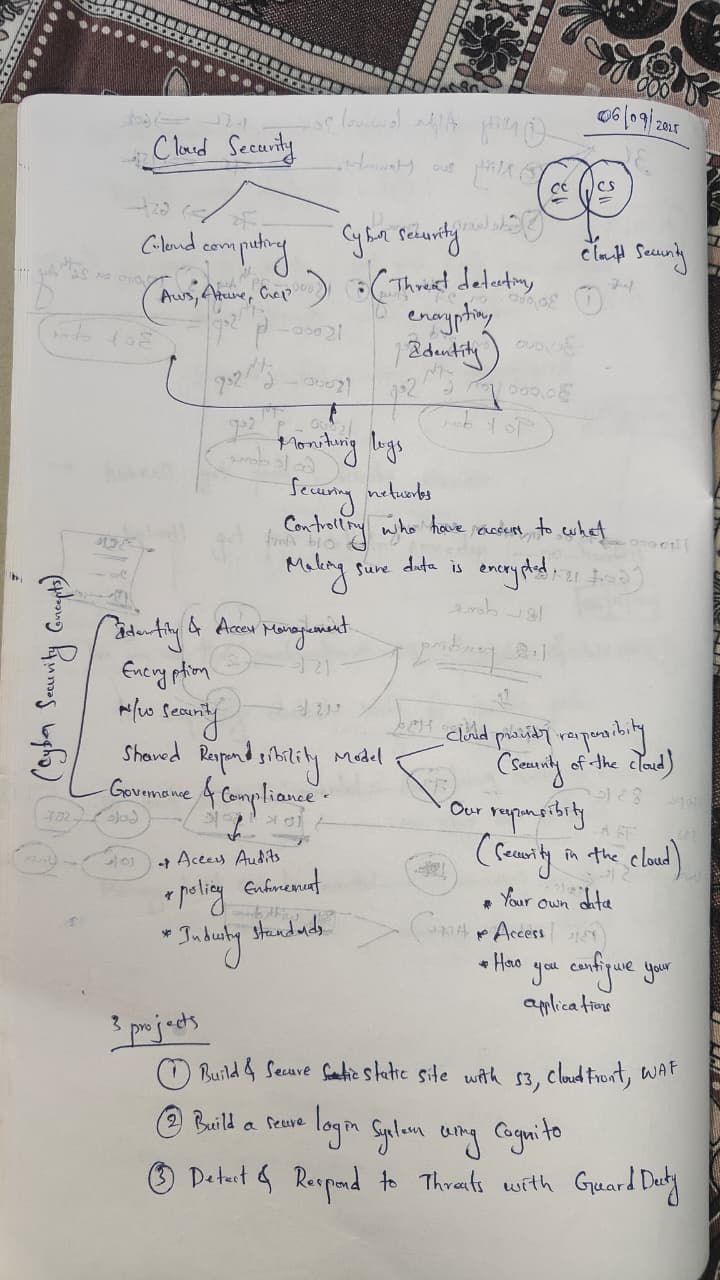 06/09/2025
Cloud Security
CC CS
Cloud Security
Cloud computing
Cyber security
(AWS, Azure, GCP)
(Threat detection,
encryption,
Identity)
Monitoring logs
Securing networks
Controlling who have access to what
Making sure data is encrypted.
(Cyber Security Concepts)
Identity & Access Management
Encryption
N/W Security
Shared Respondsibility Model
Governance & Compliance.
Cloud provider responsibity
(Security of the cloud)
Our responsibity
(Security in the cloud)
* Your own data
* Access
* How you configure your
applications
→ Access Audits
* policy Enforcement
* Industry Standards
3 projects
① Build & Secure static site with S3, CloudFront, WAF
② Build a secure login System using Cognito
③ Detect & Respond to Threats with Guard Duty